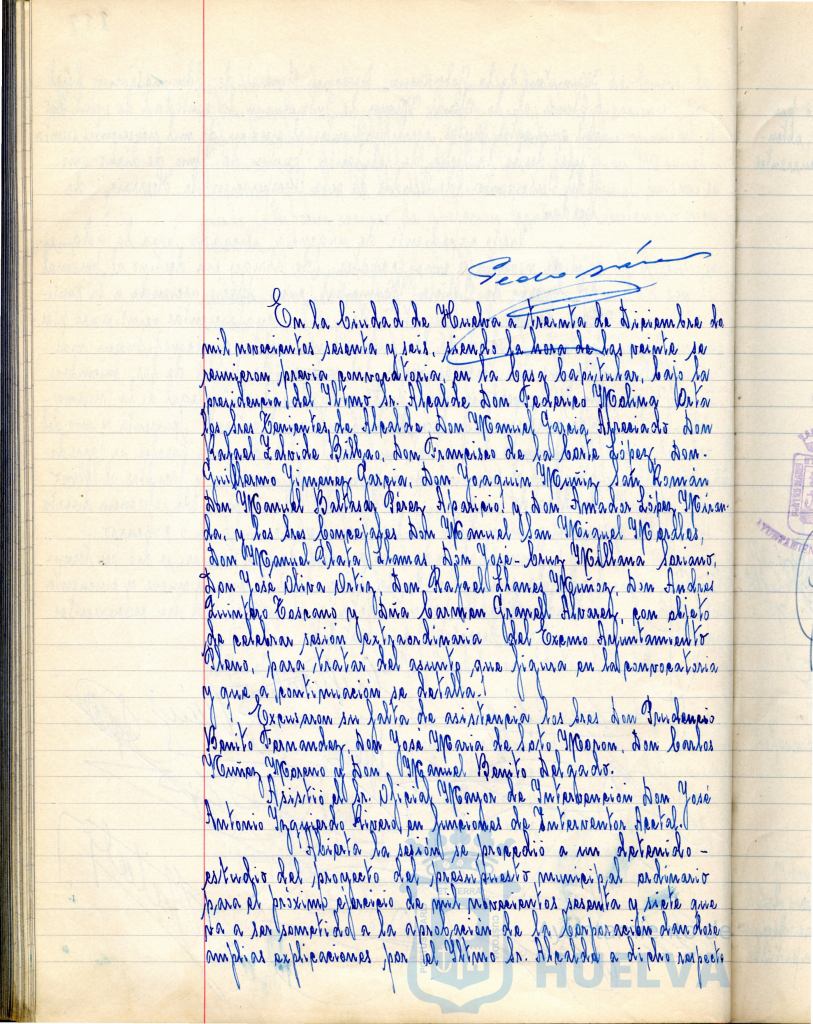 Pedro
En la Ciudad de Huelva a treinta de Diciembre de
mil novecientos sesenta y seis, siendo la hora de las veinte se
reunieron previa convocatoria, en la Casa Capitular, bajo la
presidencia del Iltmo Sr. Alcalde Don Federico Molina Orta
los Sres Tenientes de Alcalde, Don Manuel Garcia Don
Rafael Bilbao, Don Francisco de la Corte López, Don
Guillermo Gimenez Garcia, Don Joaquin Muñiz San Román
Don Manuel Baltasar Pérez Aparicio y Don Amador López Miran-
da, y los Sres Concejales Don Manuel San Miguel Morales,
Don Manuel Plata Llamas, Don José-Cruz Millana Soriano,
Don José Oliva Ortiz, Don Rafael Llanes Muñoz, Don Andrés
Quintero Toscano y Dña Carmen Granell Alvarez, con objeto
de celebrar sesión extraordinaria del Excmo Ayuntamiento
Pleno, para tratar del asunto que figura en la convocatoria
y que a continuación se detalla.
Excusaron su falta de asistencia los Sres Don Prudencio
Benito Fernandez, Don José Maria de Soto Moron, Don Carlos
Nuñez Moreno y Don Manuel Benito Delgado.
Asistió el Sr. Oficial Mayor de Intervención Don José
Antonio Izquierdo Rivero en funciones de Interventor Acctal.
Abierta la sesión se procedió a un detenido -
estudio del proyecto del presupuesto municipal ordinario
para el próximo ejercicio de mil novecientos sesenta y siete que
va a ser sometido a la aprobación de la Corporación dandose
amplias explicaciones por el Iltmo Sr. Alcalde a dicho respecto
HUELVA